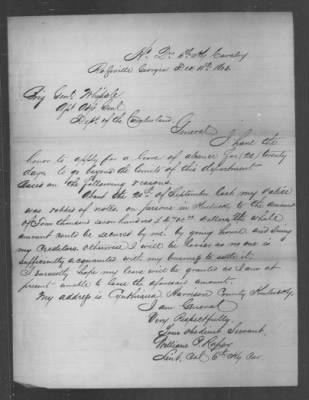 Hd. Qrs 6th Ky. Cavalry
Georgia Dec 11th 1863
Brig Genl. Whipple
Asst Adjt Genl
Dept. of the Cumberland
General
I have the
honor to apply for a leave of absence for (20) twenty
days to go beyond the limits of this department
based on the following reasons
About the 20th of September last my
was robbed of notes, on persons in Kentucky to the amount
of Four thousand seven hundred dollars the whole
amount could be secured by me by going home and seeing
my Creditors. otherwise I will be looser as no one is
sufficiently acquainted with my business to settle it.
I sincerely hope my leave will be granted as I am at
present unable to loose the aforesaid amount.
My address is Cynthiana Harrison County Kentucky.
I am General
Very Respectfully.
Your obedient Servant.
William P Roper
Lieut. Col 6th Ky Cav.